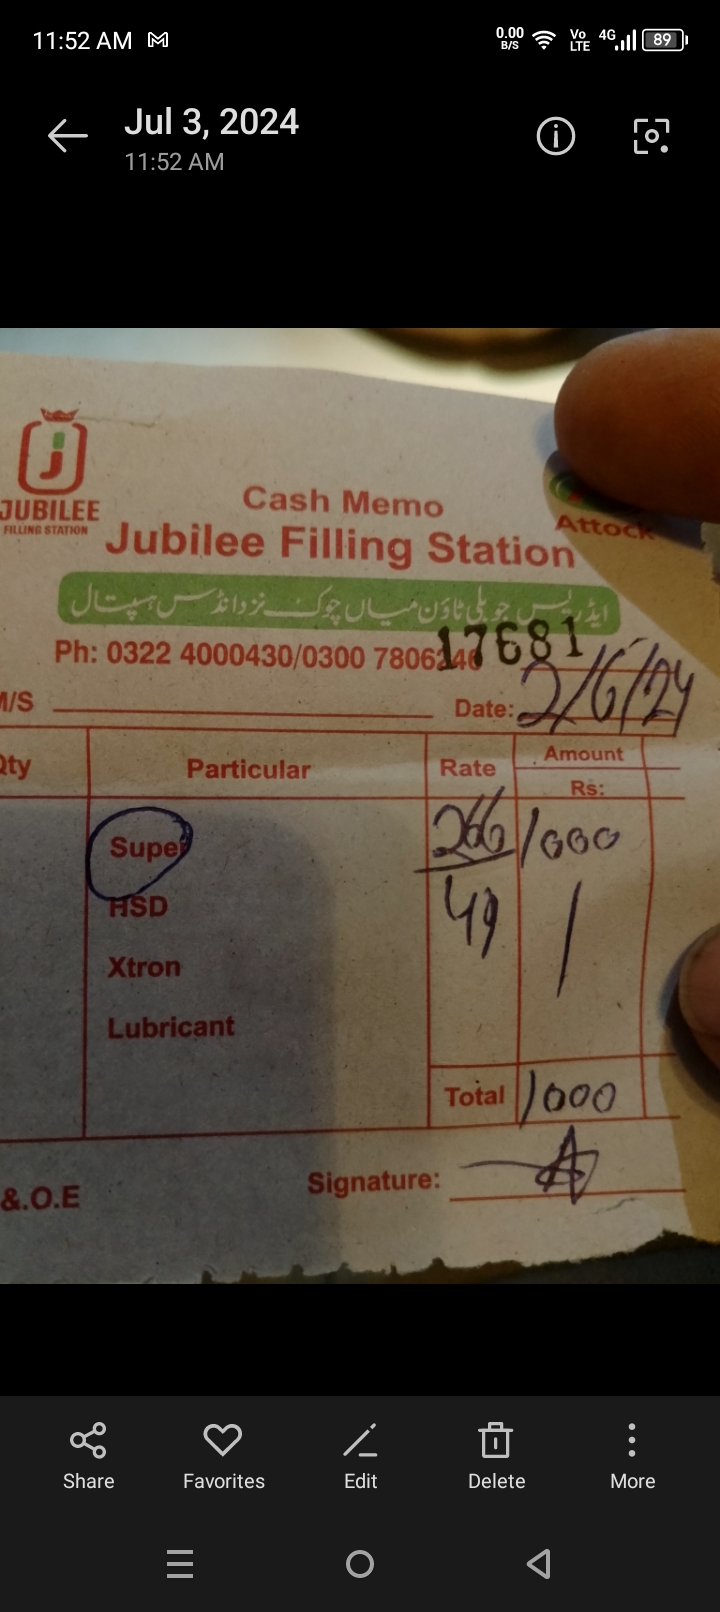 11:52 AM
0.00 B/S Vo LTE 4G 89
Jul 3, 2024
11:52 AM
JUBILEE
FILLING STATION
Cash Memo
Attock
Jubilee Filling Station
ایڈریس جوبلی ٹاؤن میاں چوک نزد انڈس ہسپتال
Ph: 0322 4000430/0300 7806246
17681
M/S Date: 2/6/24
Qty Particular Rate Amount
Rs:
Super 266 1000
49
HSD
Xtron
Lubricant
Total 1000
&.O.E Signature:
Share Favorites Edit Delete More